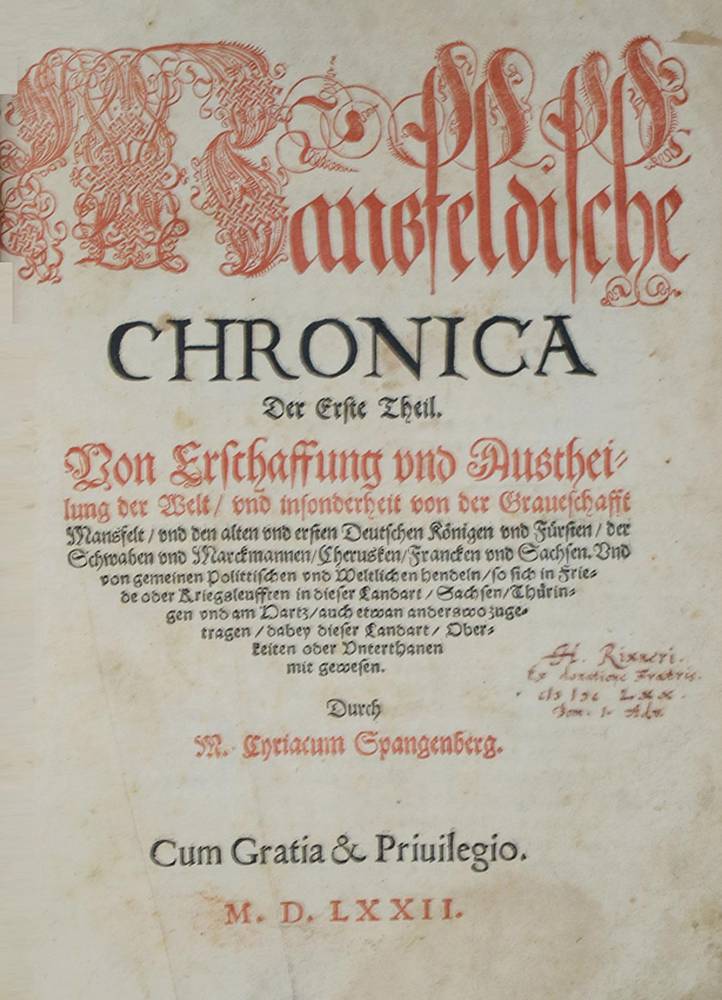 Mansfeldische
CHRONICA
Der Erste Theil.
Von Erschaffung vnd Austhei-
lung der Welt / vnd insonderheit von der Graueschafft
Mansfelt / vnd den alten vnd ersten Deutschen Königen vnd Fürsten / der
Schwaben vnd Marckmannen / Cherusken / Francken vnd Sachsen. Vnd
von gemeinen Polittischen vnd Weltlichen hendeln / so sich in Frie-
de oder Kriegsleufften in dieser Landart / Sachsen / Thürin-
gen vnd am Hartz / auch etwan anderswo zuge-
tragen / dabey dieser Landart / Ober-
keiten oder Vnterthanen
mit gewesen.
Durch
M. Cyriacum Spangenberg.
H. Rixneri.
Ex donatione Fratris.
Cum Gratia & Priuilegio.
M. D. LXXII.